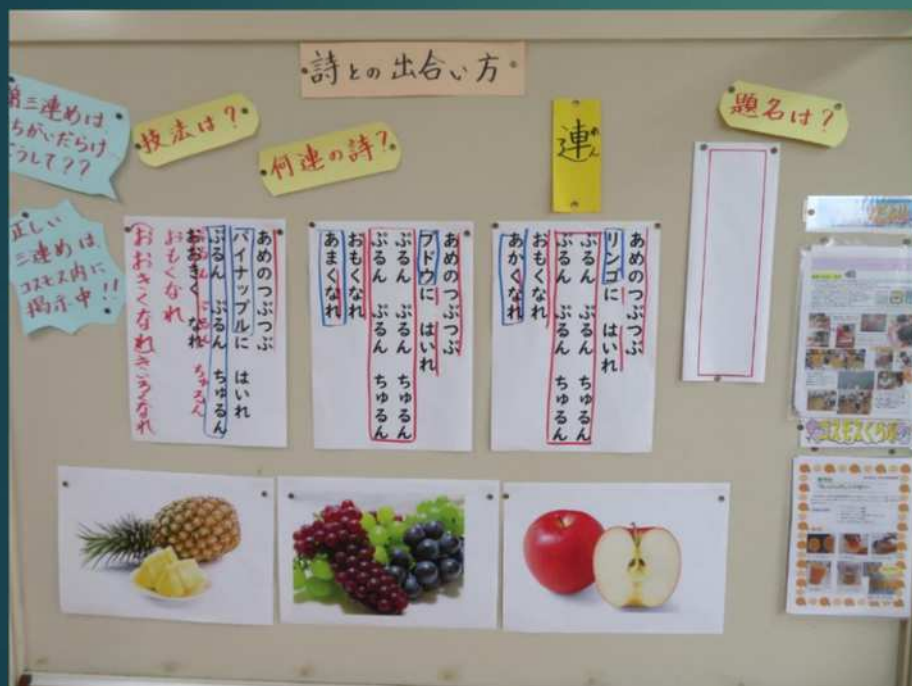 詩との出合い方
題名は？
連
れん
何連の詩？
技法は？
第三連めは、
ちがいだらけ
どうして??
正しい
三連めは、
コスモス内に
掲示中!!
あめのつぶつぶ
リンゴに はいれ
ぷるん ぷるん ちゅるん
ぷるん ぷるん ちゅるん
おもくなれ
あかくなれ
あめのつぶつぶ
ブドウに はいれ
ぷるん ぷるん ちゅるん
ぷるん ぷるん ちゅるん
おもくなれ
あまくなれ
あめのつぶつぶ
パイナップルに はいれ
ぷるん ぷるん ちゅるん
おおきく なれ
ぷるん ぷるん ちゅるん
おもくなれ
おおきくなれ きいろくなれ
コスモスくらぶ